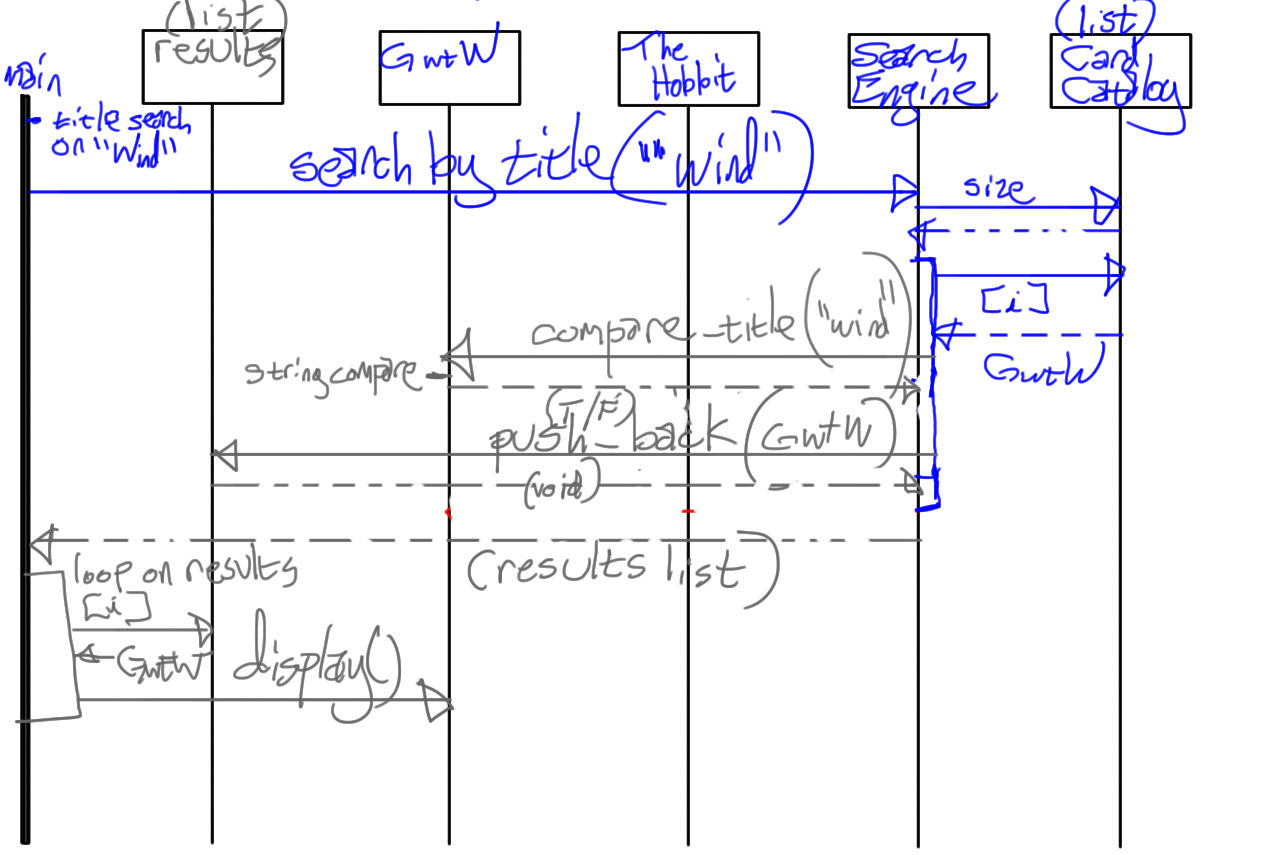 (list)
results
GwtW
The
Hobbit
Search
Engine
(list)
Card
Catalog
main
- title search
on "Wind"
search by title (""wind")
size
[i]
GwtW
compare_title("wind")
string compare
(T/F)
push_back(GwtW)
(void)
(results list)
loop on results
[i]
GwtW
display()